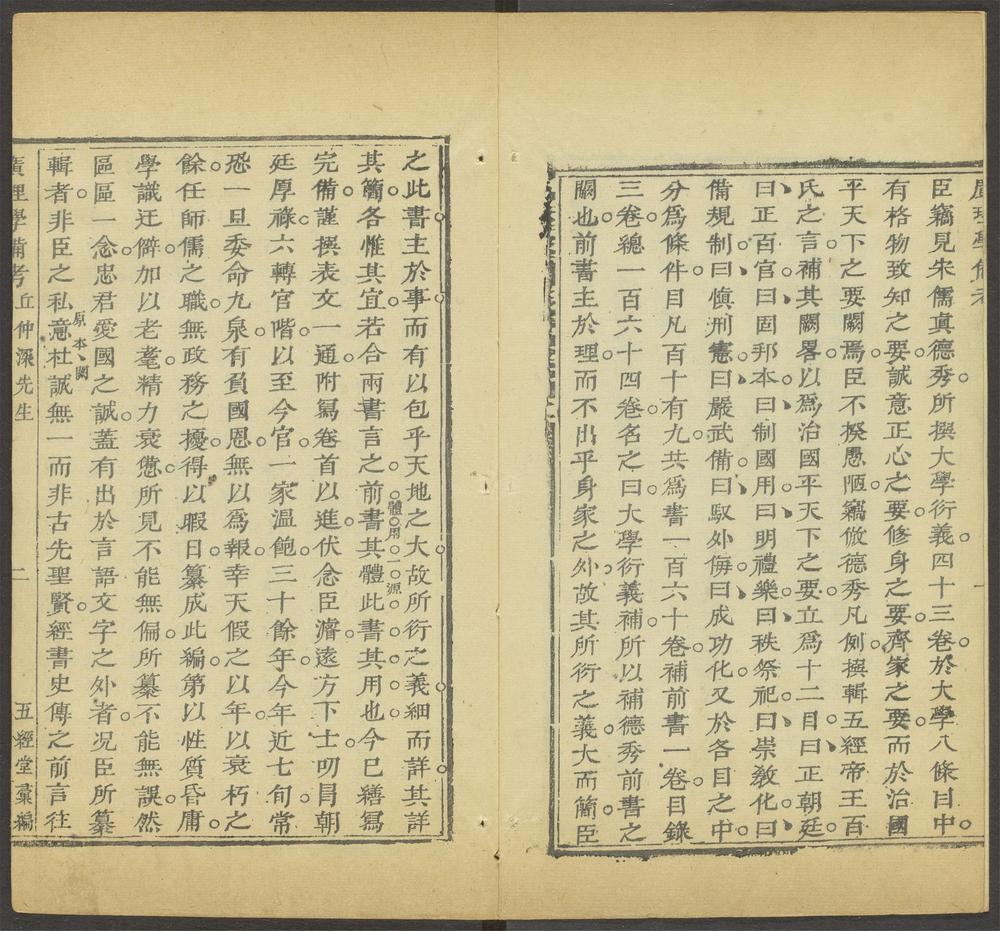 臣竊見宋儒真德秀所撰大學衍義四十三卷於大學八條目中
有格物致知之要誠意正心之要修身之要齊家之要而於治國
平天下之要闕焉臣不揆愚陋竊倣德秀凡例撰輯五經帝王百
氏之言補其闕畧以爲治國平天下之要立爲十二目曰正朝廷
曰正百官曰固邦本曰制國用曰明禮樂曰秩祭祀曰崇敎化曰
備規制曰慎刑憲曰嚴武備曰馭外侮曰成功化又於各目之中
分爲條件目凡百十有九共爲書一百六十卷補前書一卷目錄
三卷總一百六十四卷名之曰大學衍義補所以補德秀前書之
闕也前書主於理而不出乎身家之外故其所衍之義大而簡臣
之此書主於事而有以包乎天地之大故所衍之義細而詳其詳
體用一源
其簡各惟其宜若合兩書言之前書其體此書其用也今已繕寫
完備謹撰表文一通附寫卷首以進伏念臣濬遠方下士叨冒朝
廷厚祿六轉官階以至今官一家溫飽三十餘年今年近七旬常
恐一旦委命九泉有負國恩無以爲報幸天假之以年以衰朽之
餘任師儒之職無政務之擾得以暇日纂成此編第以性質昏庸
學識迂僻加以老耄精力衰憊所見不能無偏所纂不能無誤然
區區一念忠君愛國之誠蓋有出於言語文字之外者况臣所纂
原本闕
輯者非臣之私意杜誠無一而非古先聖賢經書史傳之前言往
廣理學備考 丘仲深先生 二 五經堂彙編